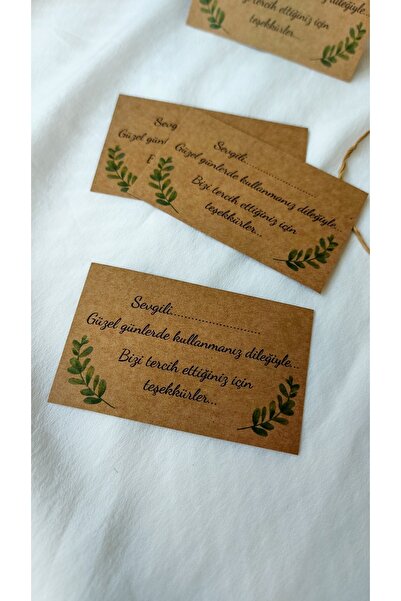 dileğiyle...
Bizi tercih ettiğiniz için
teşekkürler...
Sevg
Güzel gün
Sevgili......................
Güzel günlerde kullanmanız dileğiyle...
Bizi tercih ettiğiniz için
teşekkürler...
Sevgili......................
Güzel günlerde kullanmanız dileğiyle...
Bizi tercih ettiğiniz için
teşekkürler...